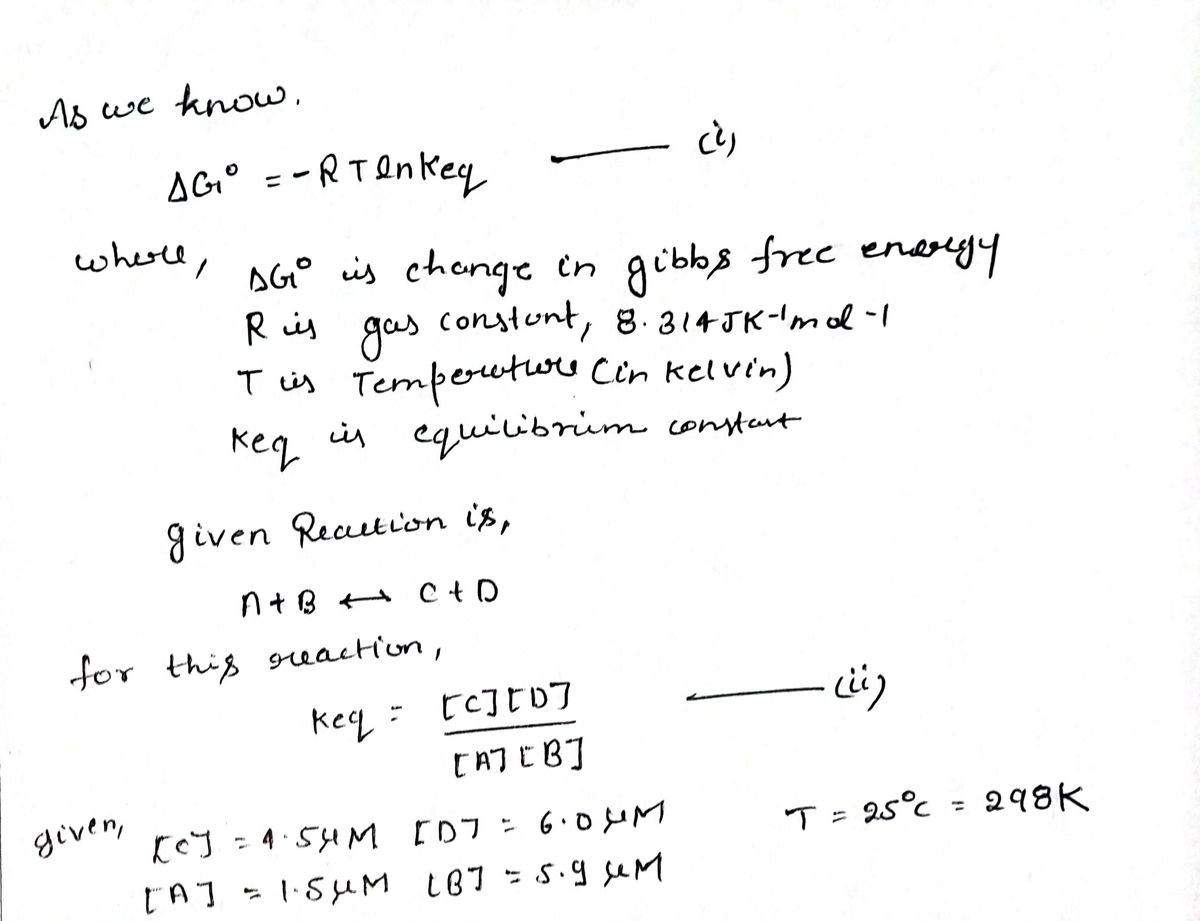 As we know.
ΔG° = -RT ln Keq —— (i)
where,
ΔG° is change in gibbs free energy
R is gas constant, 8.314 JK-1mol-1
T is Temperature (in kelvin)
Keq is equilibrium constant
given Reaction is,
A + B ↔ C + D
for this reaction,
Keq = [C][D] / [A][B] —— (ii)
given, [C] = 4.5 μM [D] = 6.0 μM T = 25°C = 298K
[A] = 1.5 μM [B] = 5.9 μM